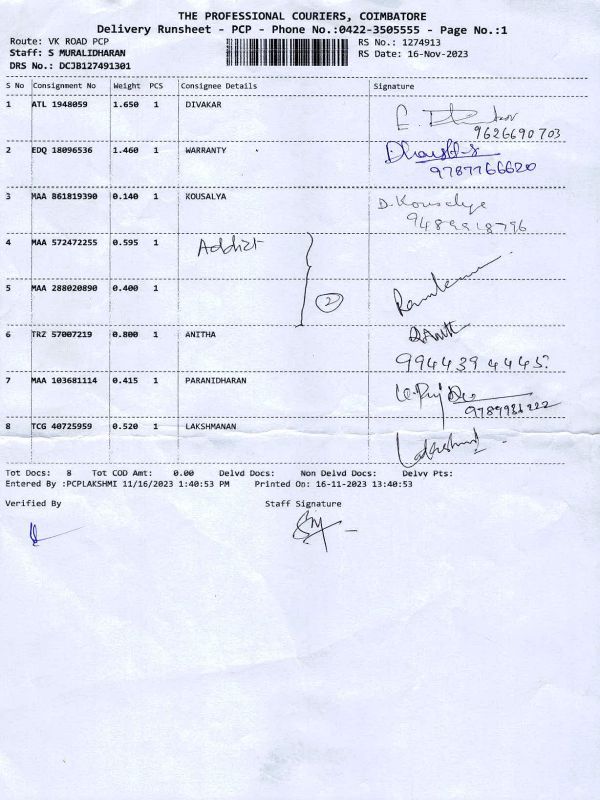 THE PROFESSIONAL COURIERS, COIMBATORE
Delivery Runsheet - PCP - Phone No.:0422-3505555 - Page No.:1
Route: VK ROAD PCP RS No.: 1274913
Staff: S MURALIDHARAN RS Date: 16-Nov-2023
DRS No.: DCJB127491301
S No Consignment No Weight PCS Consignee Details Signature
1 ATL 1948059 1.650 1 DIVAKAR
9626690703
2 EDQ 18096536 1.460 1 WARRANTY
9787766620
3 MAA 861819390 0.140 1 KOUSALYA D. Kousalya
9489918796
4 MAA 572472255 0.595 1 Addict
5 MAA 288020890 0.400 1 2
6 TRZ 57007219 0.800 1 ANITHA
9944394445
7 MAA 103681114 0.415 1 PARANIDHARAN
8 TCG 40725959 0.520 1 LAKSHMANAN
Tot Docs: 8 Tot COD Amt: 0.00 Delvd Docs: Non Delvd Docs: Delvy Pts:
Entered By :PCPLAKSHMI 11/16/2023 1:40:53 PM Printed On: 16-11-2023 13:40:53
Verified By Staff Signature